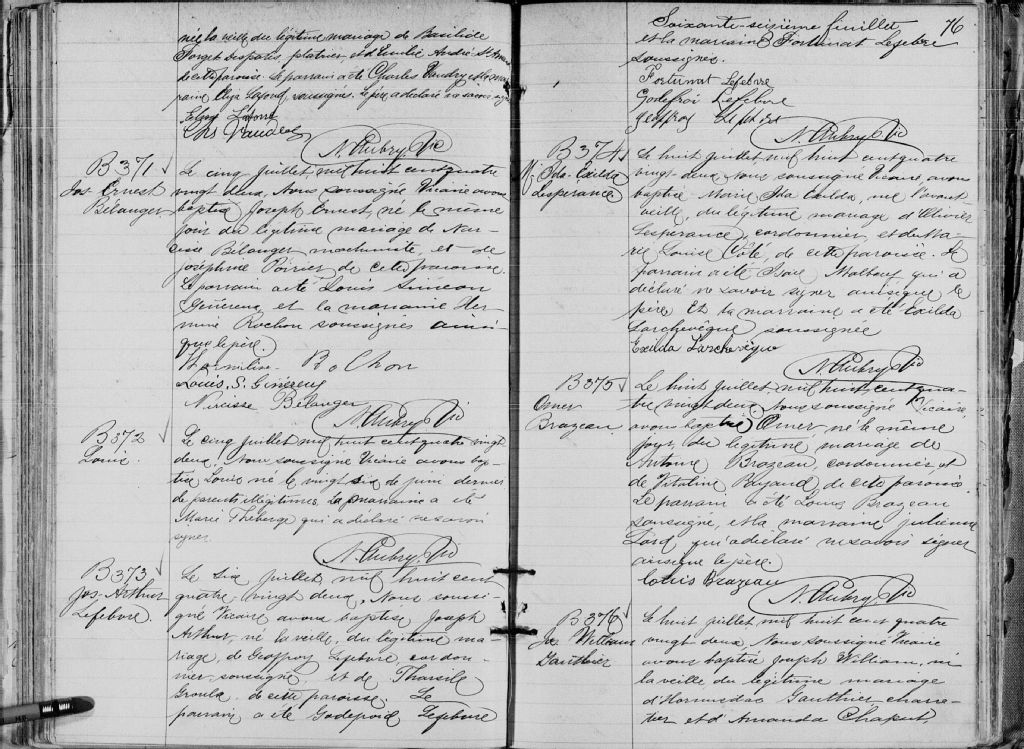 née la veille du légitime mariage de Basilide
Forget Despatis, plâtrier, et d'Emilie André St Amant
de cette paroisse. Le parrain a été Charles Vaudry et la mar
raine Eliza Lafond, soussignés. Le père a déclaré ne savoir signer
Eliza Lafond
Chs Vaudry
N. Aubry, Vic
B 371
Jos Ernest
Bélanger
Le cinq juillet mil huit cent quatre
vingt deux, Nous soussigné Vicaire avons
baptisé Joseph Ernest, né le même
jour du légitime mariage de Nar-
cisse Bélanger machiniste, et de
Joséphine Poirier de cette paroisse.
Le parrain a été Louis Simeon
Généreux et la marraine Her-
mine Rochon soussignés ainsi
que le père.
Rochon
Louis. S. Généreux
Narcisse Bélanger
N. Aubry, Vic
B 372
Louis.
Le cinq juillet mil huit cent quatre vingt
deux, Nous soussigné Vicaire avons bap-
tisé Louis né le vingt six de juin dernier
de parents illégitimes. La marraine a été
Marie Theberge qui a déclaré ne savoir
signer
N. Aubry, Vic
B 373
Jos-Arthur
Lefebvre.
Le six juillet, mil huit cent
quatre-vingt deux, Nous soussi-
gné Vicaire avons baptisé Joseph
Arthur, né la veille, du légitime ma-
riage, de Geoffroy Lefebvre, cordon-
nier soussigné et de Tharsile
Groulx de cette paroisse. Le
parrain a été Godefroid Lefebvre
Soixante-seizième feuillet 76
et la marraine Fortunat Lefebvre
soussignée.
Fortunat Lefebvre
Godefroi Lefebvre
Geoffroy Lefebvre
N. Aubry, Vic
B 374
M. Ida-Exilda
Lesperance
Le huit juillet mil huit cent quatre
vingt-deux Nous soussigné Vicaire avons
baptisé Marie Ida Exilda, née l'avant
veille, du légitime mariage d'Olivier
Lesperance, cordonnier et de Ma-
rie Louise Côté, de cette paroisse. Le
parrain a été Isaie Malboeuf qui a
déclaré ne savoir signer ainsi que le
père Et la marraine a été Exilda
Larchevêque soussignée
Exilda Larchevêque
N. Aubry, Vic
B 375
Omer
Brazeau
Le huit juillet, mil huit cent qua-
tre vingt deux Nous soussigné Vicaire
avons baptisé Omer, né le même
jour, du légitime mariage de
Antoine Brazeau, cordonnier et
de Vitaline Bayard de cette paroisse.
Le parrain a été Louis Brazeau
soussigné, et la marraine Julienne
Lord, qui a déclaré ne savoir signer
ainsi que le père.
Louis Brazeau
N. Aubry, Vic
B 376
Jos William
Gauthier
Le huit juillet mil huit cent quatre
vingt-deux Nous soussigné Vicaire
avons baptisé Joseph William, né
la veille du légitime mariage
d'Hormisdas Gauthier charre-
tier et d'Amanda Chaput,